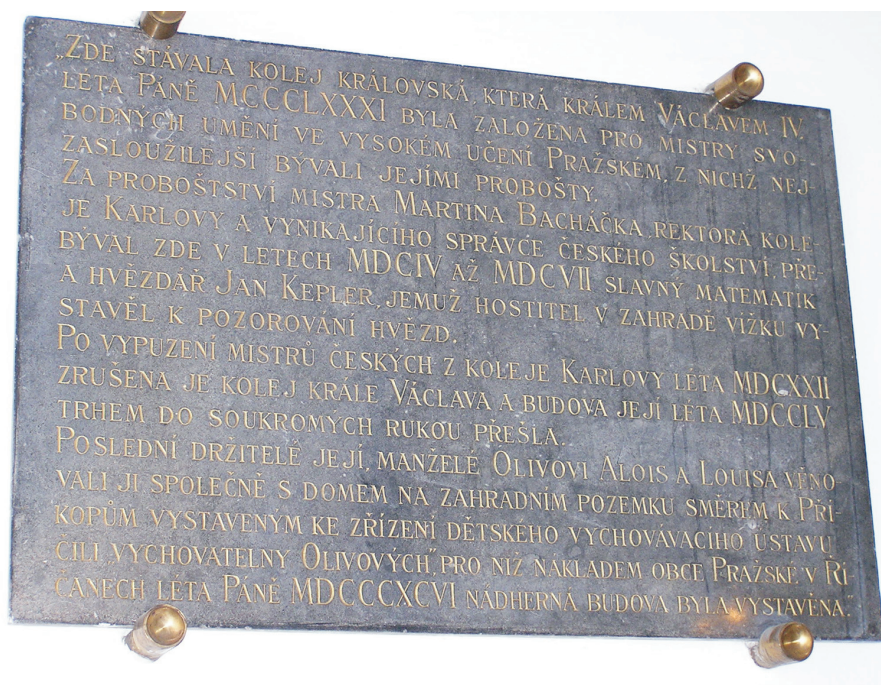 „ZDE STÁVALA KOLEJ KRÁLOVSKÁ, KTERÁ KRÁLEM VÁCLAVEM IV.
LÉTA PÁNĚ MCCCLXXXI BYLA ZALOŽENA PRO MISTRY SVO-
BODNÝCH UMĚNÍ VE VYSOKÉM UČENÍ PRAŽSKÉM, Z NICHŽ NEJ-
ZASLOUŽILEJŠÍ BÝVALI JEJÍMI PROBOŠTY.
ZA PROBOŠTSTVÍ MISTRA MARTINA BACHÁČKA, REKTORA KOLE-
JE KARLOVY A VYNIKAJÍCÍHO SPRÁVCE ČESKÉHO ŠKOLSTVÍ, PŘE-
BÝVAL ZDE V LETECH MDCIV AŽ MDCVII SLAVNÝ MATEMATIK
A HVĚZDÁŘ JAN KEPLER, JEMUŽ HOSTITEL V ZAHRADĚ VÍŽKU VY-
STAVĚL K POZOROVÁNÍ HVĚZD.
PO VYPUZENÍ MISTRŮ ČESKÝCH Z KOLEJE KARLOVY LÉTA MDCXXII
ZRUŠENA JE KOLEJ KRÁLE VÁCLAVA A BUDOVA JEJÍ LÉTA MDCCLV
TRHEM DO SOUKROMÝCH RUKOU PŘEŠLA.
POSLEDNÍ DRŽITELÉ JEJÍ, MANŽELÉ OLIVOVI ALOIS A LOUISA VĚNO
VALI JI SPOLEČNĚ S DOMEM NA ZAHRADNÍM POZEMKU SMĚREM K PŘÍ-
KOPŮM VYSTAVENÝM KE ZŘÍZENÍ DĚTSKÉHO VYCHOVÁVACÍHO ÚSTAVU
ČILI „VYCHOVATELNY OLIVOVÝCH“, PRO NIŽ NÁKLADEM OBCE PRAŽSKÉ V ŘÍ
ČANECH LÉTA PÁNĚ MDCCCXCVI NÁDHERNÁ BUDOVA BYLA VYSTAVĚNA.